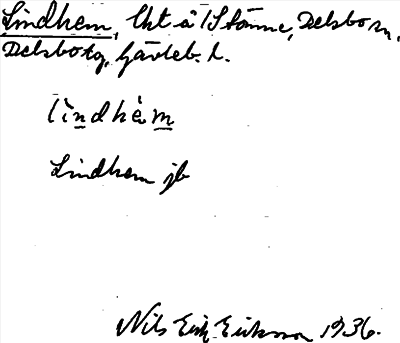 Lindhem, lht å 1 Stömne, Delsbo sn,
Delsbo tg, Gävleb. l.
lìndhèm
Lindhem jb
Nils Erik Eriksson 1936.